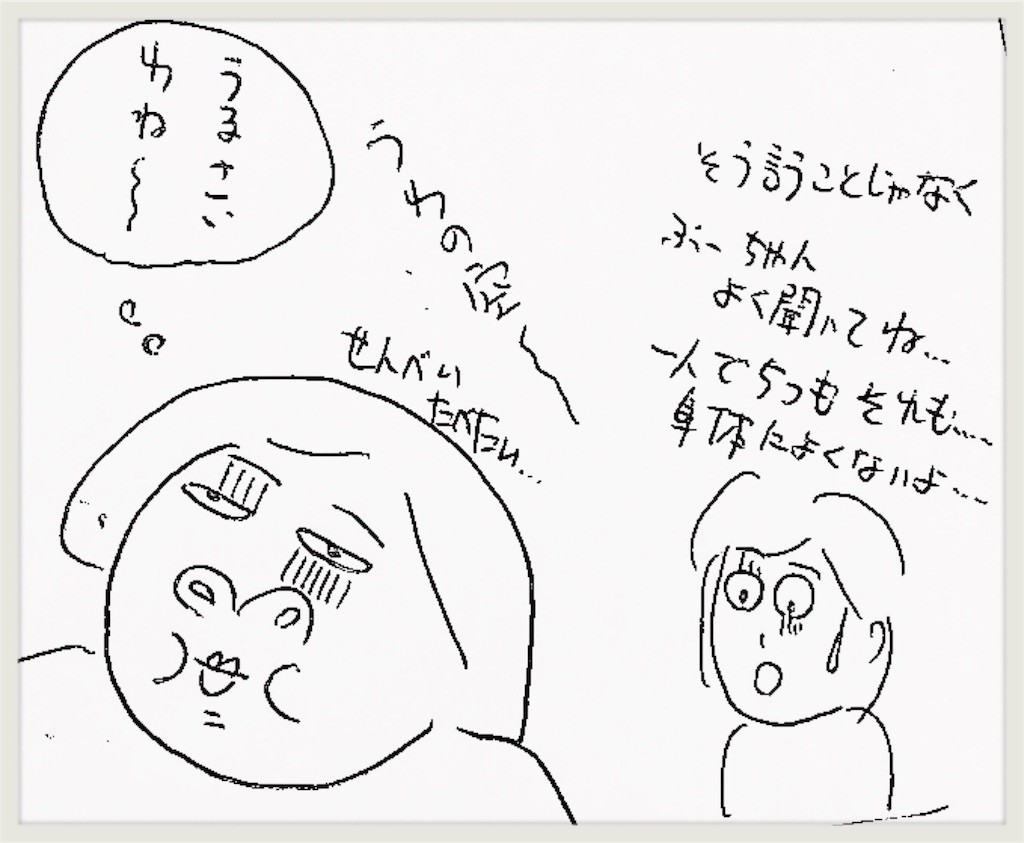 そう言うことじゃなく
ぶーちゃん
よく聞いてね…
一人で5つもそれも……
身体によくないよ…
うわの空〜
せんべい
たべたい…
うるさい
わね〜